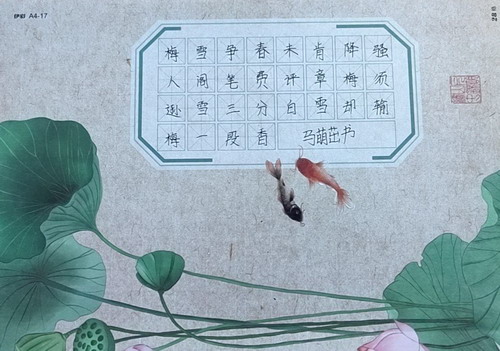 A4-17
梅雪争春未肯降骚
人阁笔费评章梅须
逊雪三分白雪却输
梅一段香 马萌茁书